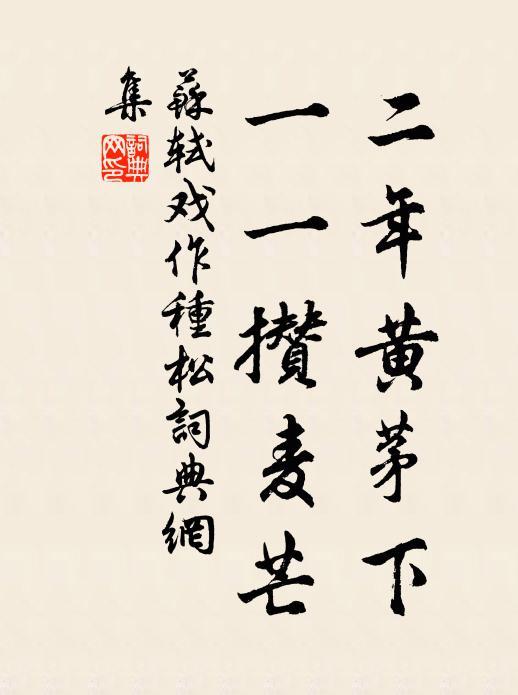 二年黄茅下
一一攅麦芒
蘇軾戏作種松詞典網
集
詞典
网印